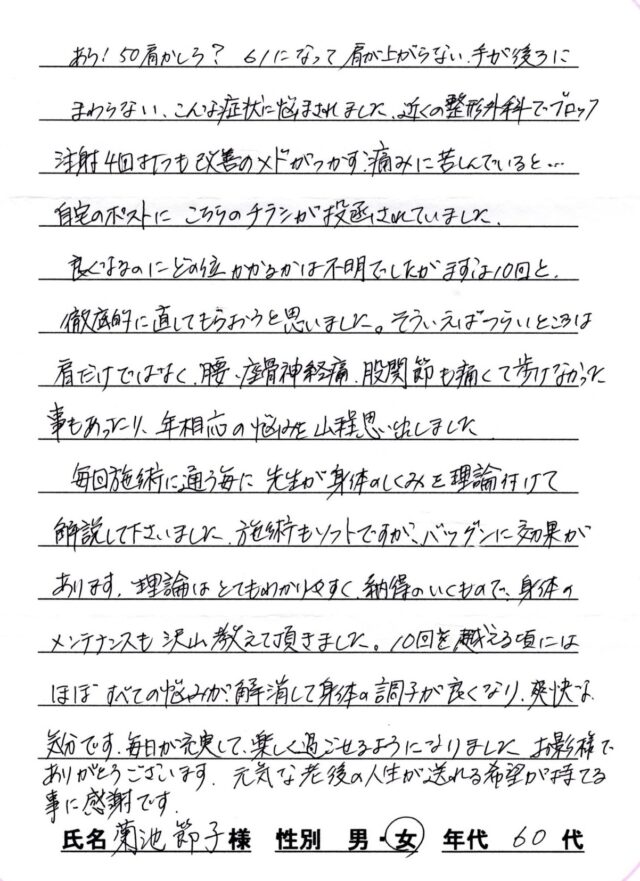 あら！50肩かしら？ 61になって肩が上がらない、手が後ろに
まわらない、こんな症状に悩まされました、近くの整形外科でブロック
注射4回打つも改善のメドがつかず、痛みに苦しんでいると…
自宅のポストに こちらのチラシが投函されていました、
良くなるのにどの位かかるかは不明でしたがまずは10回と、
徹底的に直してもらおうと思いました。そういえばつらいところは
肩だけではなく、腰、座骨神経痛、股関節も痛くて歩けなかった
事もあったり、年相応の悩みを山程思い出しました
毎回施術に通う毎に 先生が身体のしくみを理論付けて
解説して下さいました、施術もソフトですが、バツグンに効果が
あります、理論はとてもわかりやすく、納得のいくもので、身体の
メンテナンスも 沢山教えて頂きました。10回を越える頃には
ほぼ すべての悩みが、解消して身体の調子が良くなり、爽快な
気分です、毎日が充実して、楽しく過ごせるようになりました お影様で
ありがとうございます、元気な老後の人生が送れる希望が持てる
事に感謝です、
氏名 菊池節子 様 性別 男・女 年代 60 代